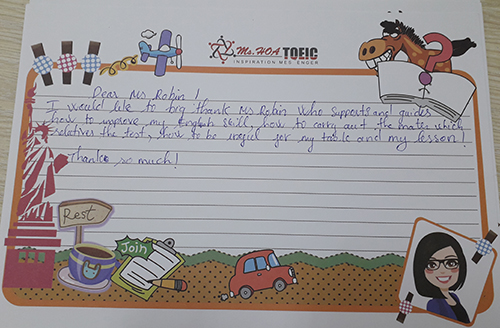 Ms. HOA TOEIC
INSPIRATION MESSENGER
Dear Ms Robin!
I would like to big thank Ms Robin who supports and guides
how to improve my English skill, how to carry out the mates which
relatives the test, how to be useful for my task and my lesson!
Thanks so much!
Rest
Join